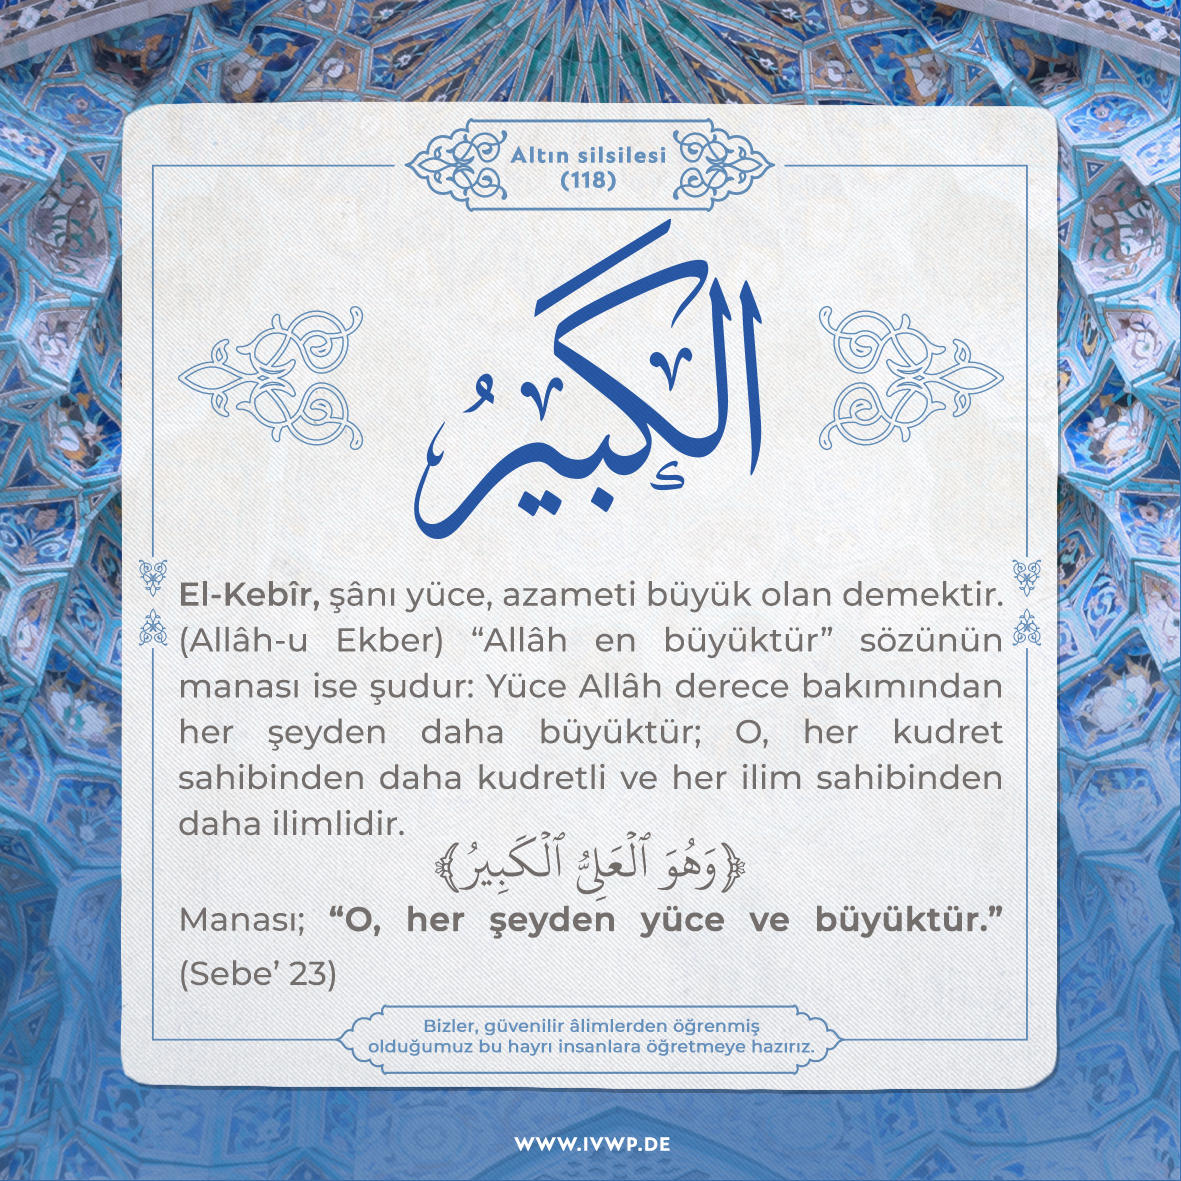 Altın silsilesi
(118)
الكَبِيرُ
El-Kebîr, şânı yüce, azameti büyük olan demektir.
(Allâh-u Ekber) “Allâh en büyüktür” sözünün
manası ise şudur: Yüce Allâh derece bakımından
her şeyden daha büyüktür; O, her kudret
sahibinden daha kudretli ve her ilim sahibinden
daha ilimlidir.
﴿وَهُوَ ٱلْعَلِىُّ ٱلْكَبِيرُ﴾
Manası; “O, her şeyden yüce ve büyüktür.”
(Sebe’ 23)
Bizler, güvenilir âlimlerden öğrenmiş
olduğumuz bu hayrı insanlara öğretmeye hazırız.
WWW.IVWP.DE